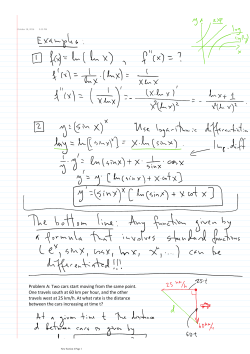 Examples
1 f(x) = ln(ln x), f''(x) = ?
f'(x) = 1/(ln x) · (ln x)' = 1/(x ln x)
f''(x) = (1/(x ln x))' = - (x ln x)'/(x²(ln x)²) = - (ln x + 1)/(x²(ln x)²)
2 y = (sin x)^x Use logarithmic differentiation
ln y = ln[(sin x)^x] = x·ln(sin x) log. diff
1/y · y' = ln(sin x) + x · 1/(sin x) · cos x
y' = y · [ln(sin x) + x cot x]
y' = (sin x)^x [ln(sin x) + x cot x]
The bottom line: Any function given by
a formula that involves standard functions
(e^x, sin x, cos x, ln x, x^r, ...) can be
differentiated!!!
Problem A: Two cars start moving from the same point.
One travels south at 60 km per hour, and the other
travels west at 25 km/h. At what rate is the distance
between the cars increasing at time t?
25 km/h
25·t
d
60 km/h
60·t
At a given time t the distance
d between cars is given by